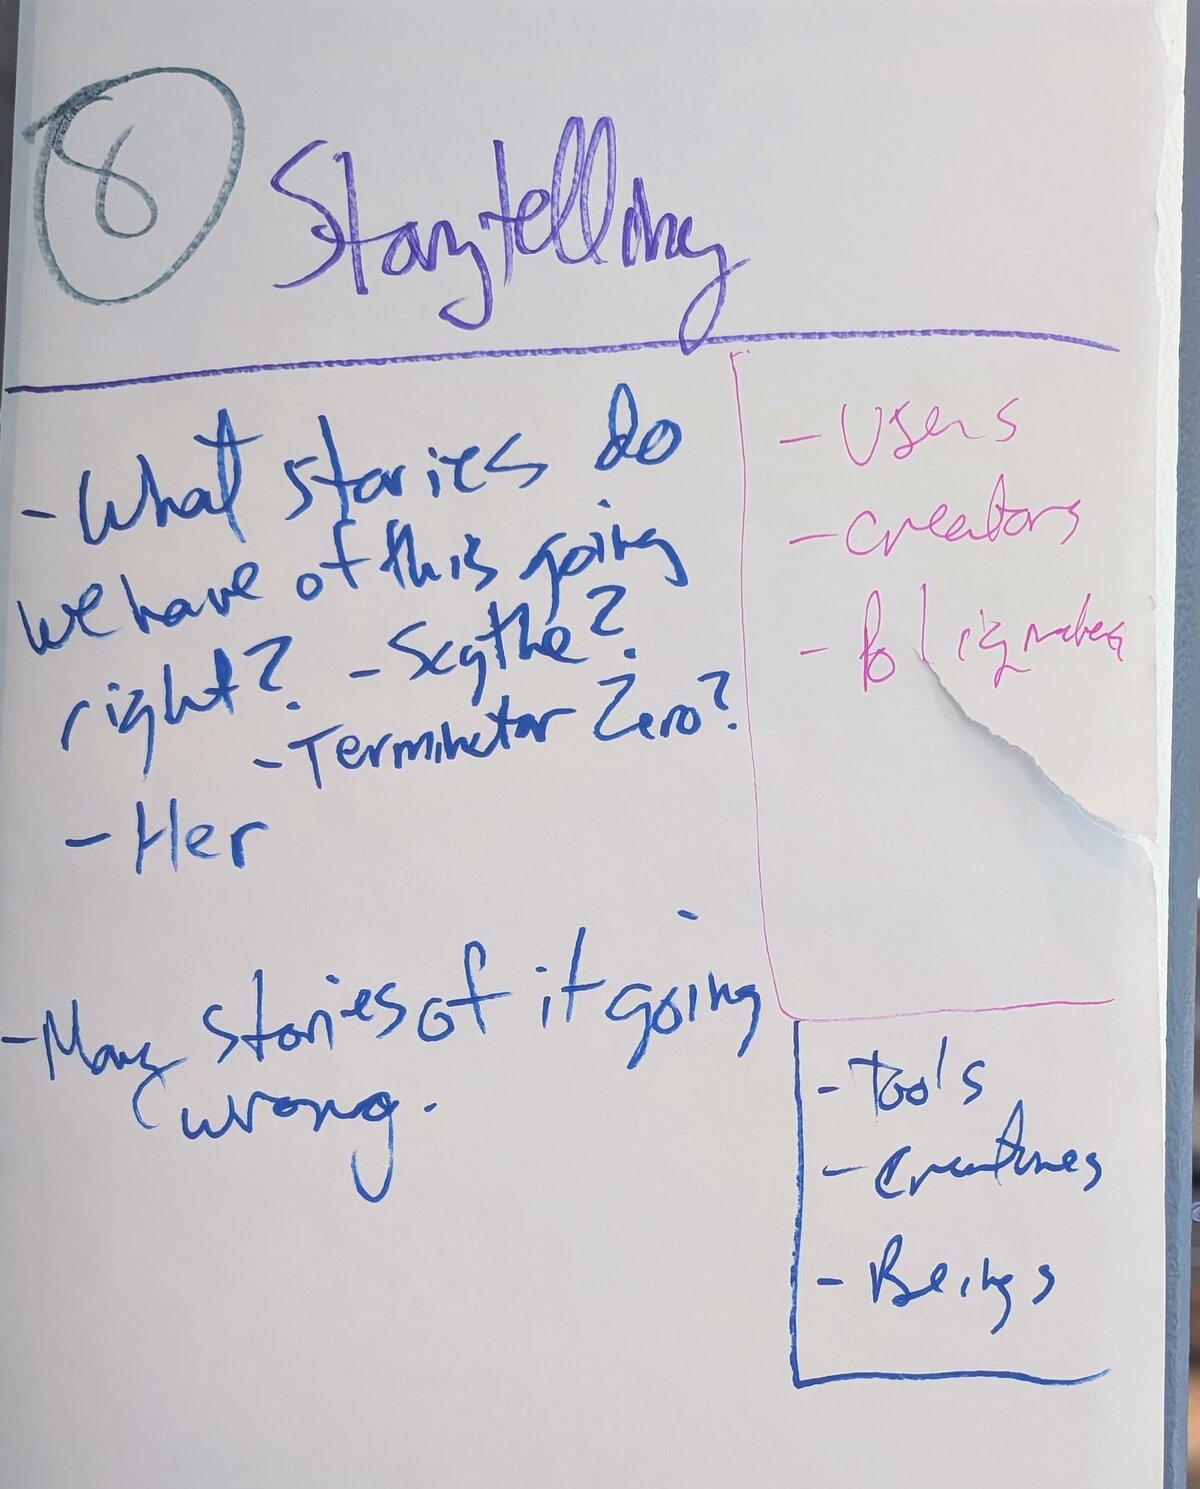 8
Storytelling
- What stories do
we have of this going
right? - Scythe?
- Terminator Zero?
- Her
- Many stories of it going
wrong.
- Users
- Creators
- Policymakers
- Tools
- Creatures
- Beings